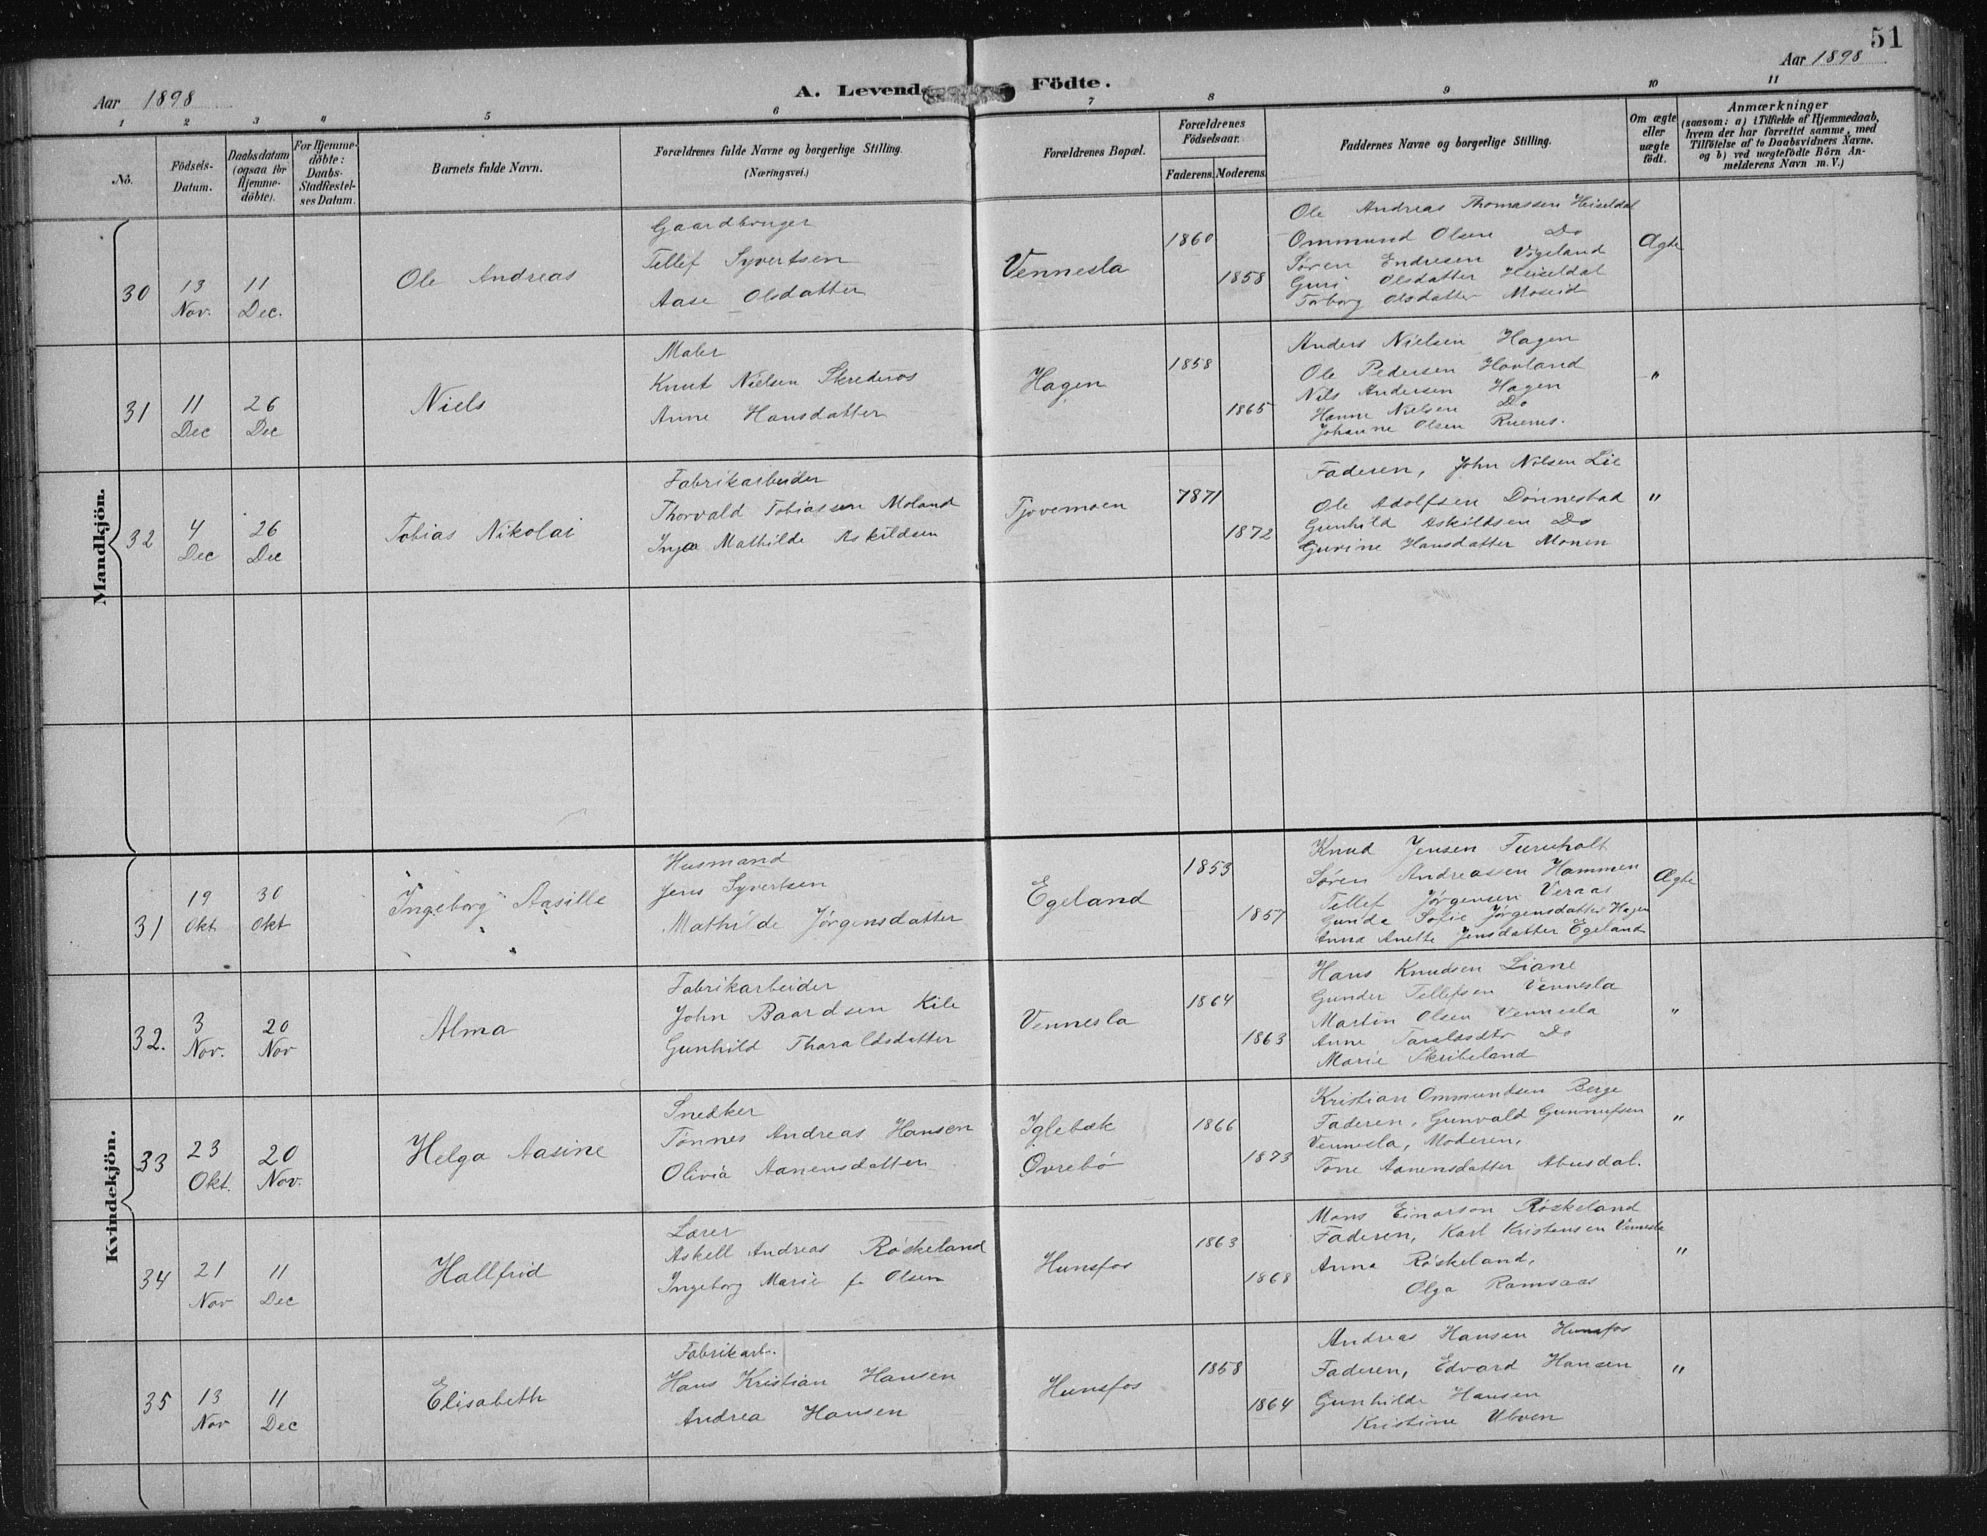 51
Aar 1898
A. Levende Födte.
Aar 1898
1 2 3 4 5 6 7 8 9 10 11
No.
Födsels-Datum.
Daabsdatum (ogsaa for Hjemme-döbte).
For Hjemme-döbte: Daabs-Stadfæstel-ses Datum.
Barnets fulde Navn.
Forældrenes fulde Navne og borgerlige Stilling.
(Næringsvei.)
Forældrenes Bopæl.
Forældrenes Födselsaar.
Faderens. Moderens.
Faddernes Navne og borgerlige Stilling.
Om ægte eller uægte födt.
Anmærkninger
(saasom: a) i Tilfælde af Hjemmedaab,
hvem der har forrettet samme, med
Tilföielse af to Daabsvidners Navne.
og b) ved uægtefödte Börn An-
melderens Navn m. V.)
Mandkjön.
30
13 Nov.
11 Dec.
Ole Andreas
Gaardbruger
Tellef Syvertsen
Aase Olsdatter
Vennesla
1860
1858
Ole Andreas Thomassen Heiseldal
Ommund Olsen Do
Søren Endresen Vigeland
Guri Olsdatter Heiseldal
Torborg Olsdatter Moseid
Ægte
31
11 Dec
26 Dec
Niels
Maler
Knut Nielsen Skrederos
Anne Hansdatter
Hagen
1858
1865
Anders Nielsen Hagen
Ole Pedersen Hovland
Nils Andersen Hagen
Hanne Nielsen Do
Johanne Olsen
"
32
4 Dec
26 Dec
Tobias Nikolai
Fabrikarbeider
Thorvald Tobiassen Moland
Inga Mathilde Askildsen
Tjovemoen
1871
1872
Faderen, John Nilsen Lie
Ole Adolfsen Dønnestad
Gunhild Askildsen Do
Gurine Hansdatter Monen
"
Kvindekjön.
31
19 Okt
30 Okt
Ingeborg Aasille
Husmand
Jens Syvertsen
Mathilde Jørgensdatter
Egeland
1853
1857
Knud Jensen Furuholt
Søren Andreassen Hommen
Tellef Jørgensen Veraas
Gunda Sofie Jørgensdatter Hagen
Anna Anette Jensdatter Egeland
Ægte
32.
3 Nov.
20 Nov
Alma
Fabrikarbeider
John Baardsen Kile
Gunhild Tharaldsdatter
Vennesla
1864
1863
Hans Knudsen Liane
Gunder Tellefsen Vennesla
Martin Olsen Vennesla
Anne Taraldsdtr Do
Marie Skribeland
"
33
23 Okt.
20 Nov.
Helga Aasine
Snedker
Tønnes Andreas Hansen
Olivia Aanensdatter
Iglebæk
Øvrebø
1866
1873
Kristian Ommundsen Berge
Faderen, Gunvald Gunnufsen
Vennesla, Moderen,
Tone Aanensdatter Abusdal.
"
34
21 Nov
11 Dec
Hallfrid
Lærer
Askell Andreas Røskeland
Ingeborg Marie f. Olsen
Hunsfos
1863
1868
Mons Einarson Røskeland
Faderen, Karl Kristensen Vennesla
Anna Røskeland,
Olga Ramsaas
"
35
13 Nov
11 Dec
Elisabeth
Fabrikarb.
Hans Kristian Hansen
Andrea Hansen
Hunsfos
1858
1864
Andreas Hansen Hunsfos
Faderen, Edvard Hansen
Gunhilde Hansen
Kristine
"